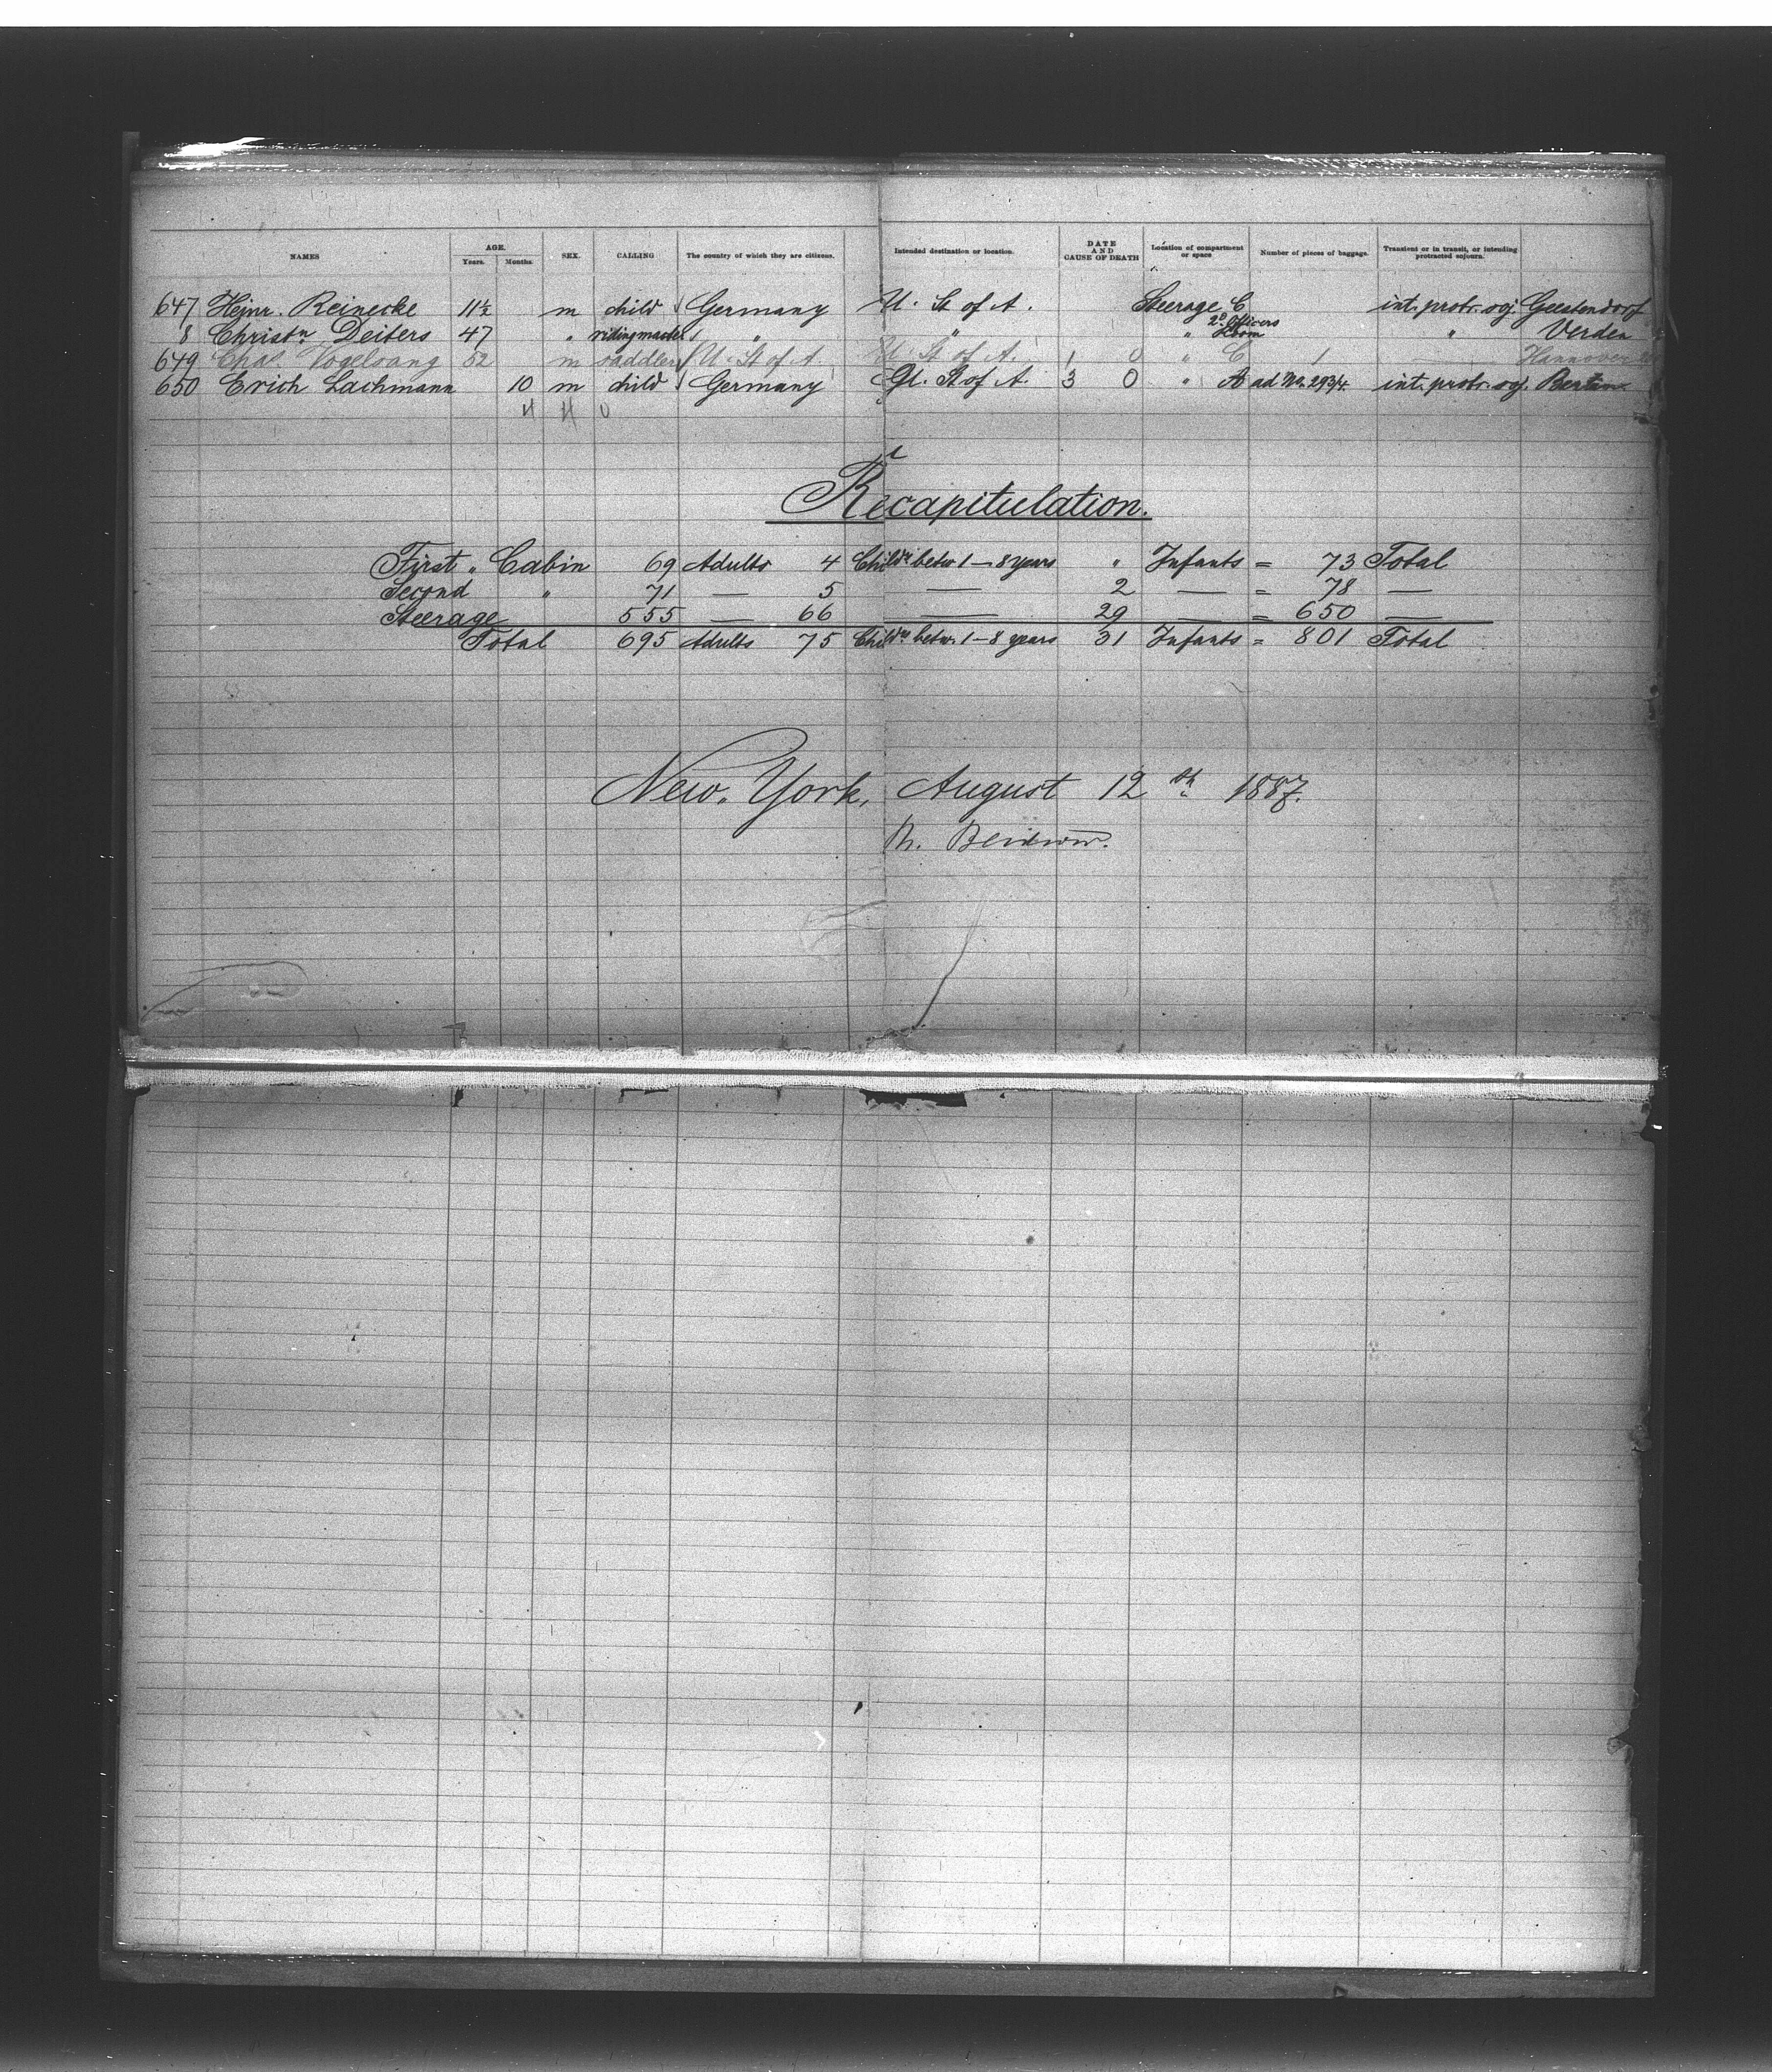 NAMES AGE. Years. Months. SEX. CALLING The country of which they are citizens. Intended destination or location. DATE AND CAUSE OF DEATH Location of compartment or space Number of pieces of baggage. Transient or in transit, or intending protracted sojourn.
647 Heinr. Reinecke 11½ m child Germany U. St of A. Steerage C int. protr. soj. Geestendorf
8 Christn Deiters 47 " ridingmaster " " " 2d Officers Room " Verden
649 Chas. Vogelsang 52 m saddler U. St of A. U. St of A. 1 0 " C 1 — Hannover
650 Erich Lachmann 10 m child Germany St of A. 3 0 " A ad No. 293/4. int. protr. soj. Berlin
Recapitulation.
First " Cabin 69 Adults 4 Childn betw 1—8 years " Infants = 73 Total
Second " 71 — 5 — 2 — = 78 —
Steerage 555 — 66 — 29 — = 650 —
Total 695 Adults 75 Childn betw. 1—8 years 31 Infants = 801 Total
New York, August 12th 1887.